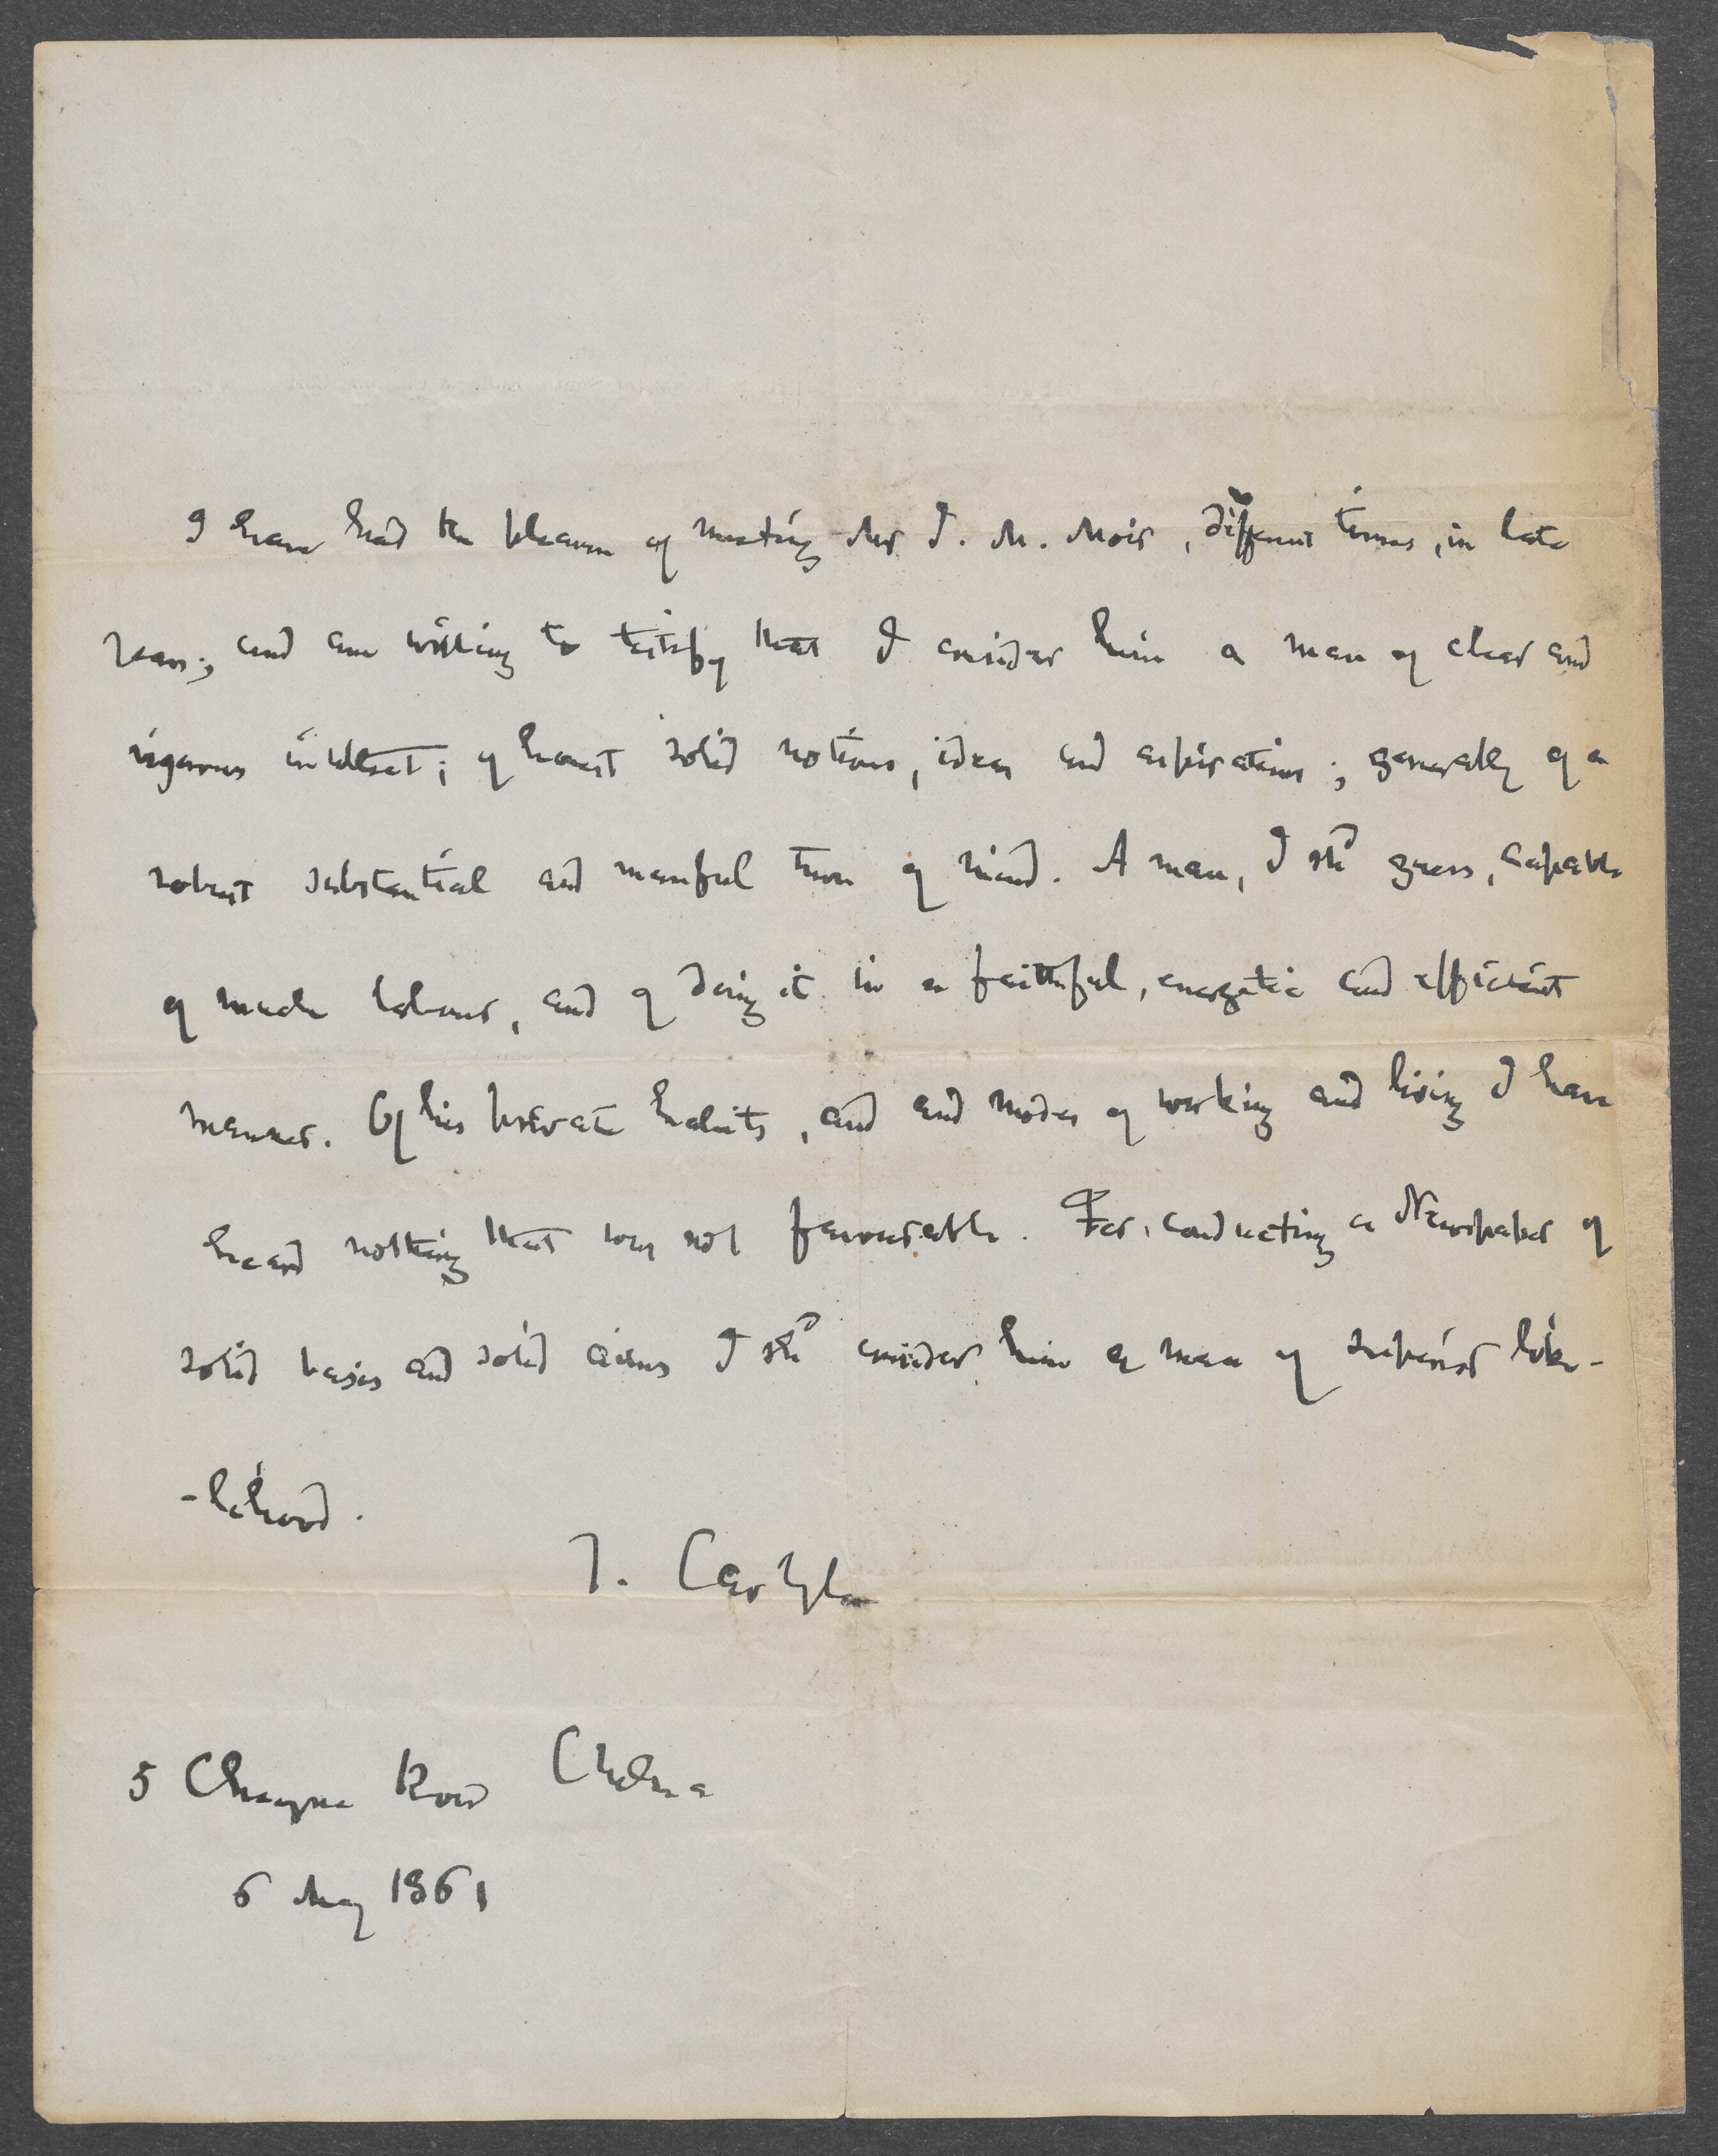 I have had the pleasure of meeting Mr J. M. Moir, different times, in late
years; and am willing to testify that I consider him a man of clear and
vigorous intellect; of honest solid notions, ideas and aspirations; generally of a
robust substantial and manful turn of mind. A man, I shd guess, capable
of much labour, and of doing it in a faithful, energetic and efficient
manner. Of his private habits, and and modes of working and living I have
heard nothing that was not favourable. For conducting a Newspaper of
solid basis and solid aims I shd consider him a man of superior like-
-lihood.
T. Carlyle
5 Cheyne Row Chelsea
6 May 1861